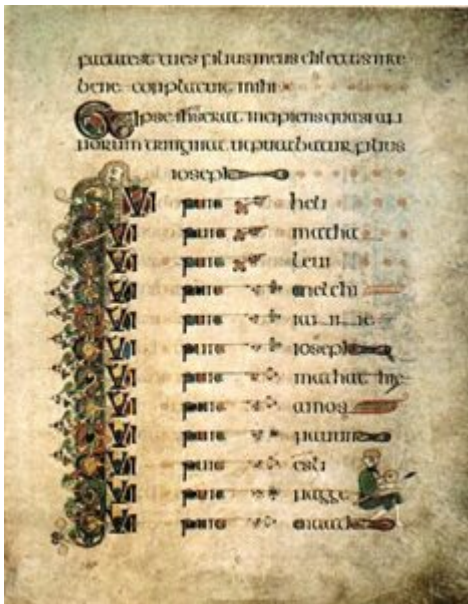 facta est tu es filius meus dilectus in te
bene conplacuit mihi
Et ipse ihs erat incipiens quasi an
norum triginta ut putabatur filius
ioseph
Qui fuit heli
Qui fuit matha
Qui fuit leui
Qui fuit melchi
Qui fuit
Qui fuit ioseph
Qui fuit mathathie
Qui fuit amos
Qui fuit nauum
Qui fuit esli
Qui fuit nagge
Qui fuit